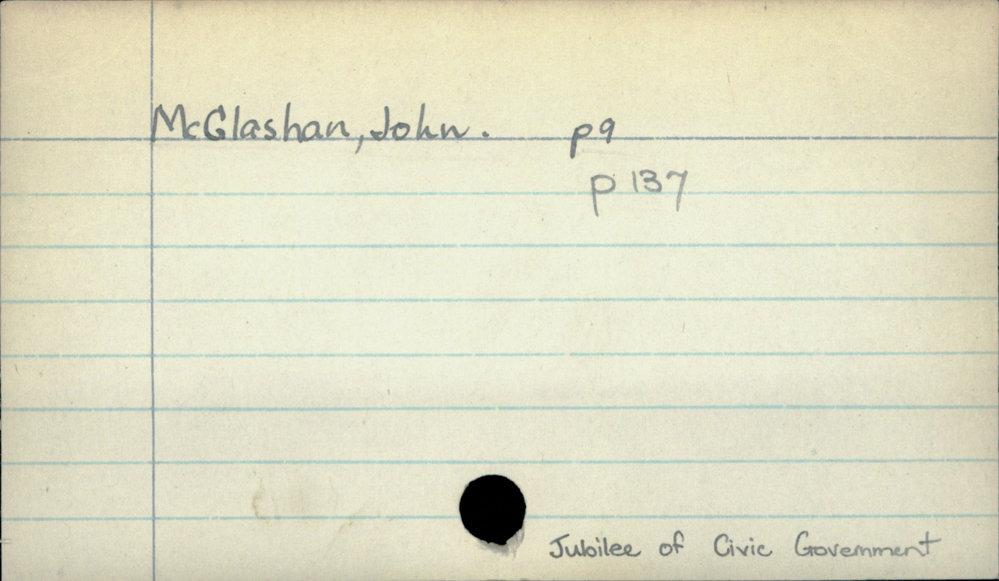 McGlashan, John. p9
p 137
Jubilee of Civic Government